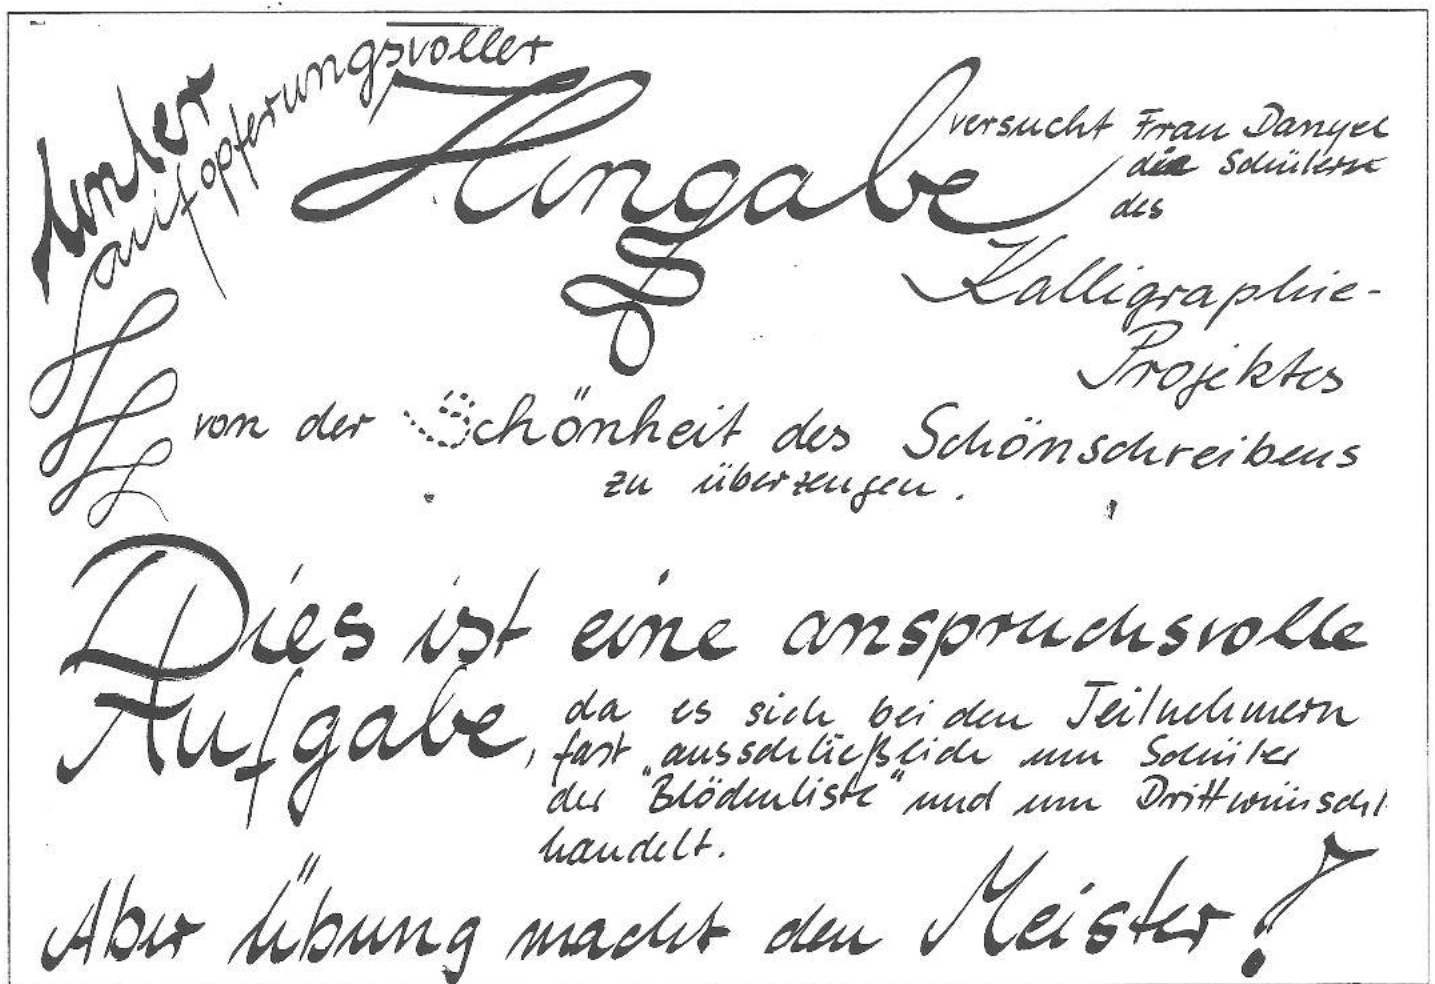 Unter
aufopferungsvoller
Hingabe
versucht Frau Danyel
die Schülern
des
Kalligraphie-
Projektes
von der Schönheit des Schönschreibens
zu überzeugen.
Dies ist eine anspruchsvolle
Aufgabe,
da es sich bei den Teilnehmern
fast ausschließlich um Schüler
der "Blödenliste" und um
handelt.
Aber Übung macht den Meister!